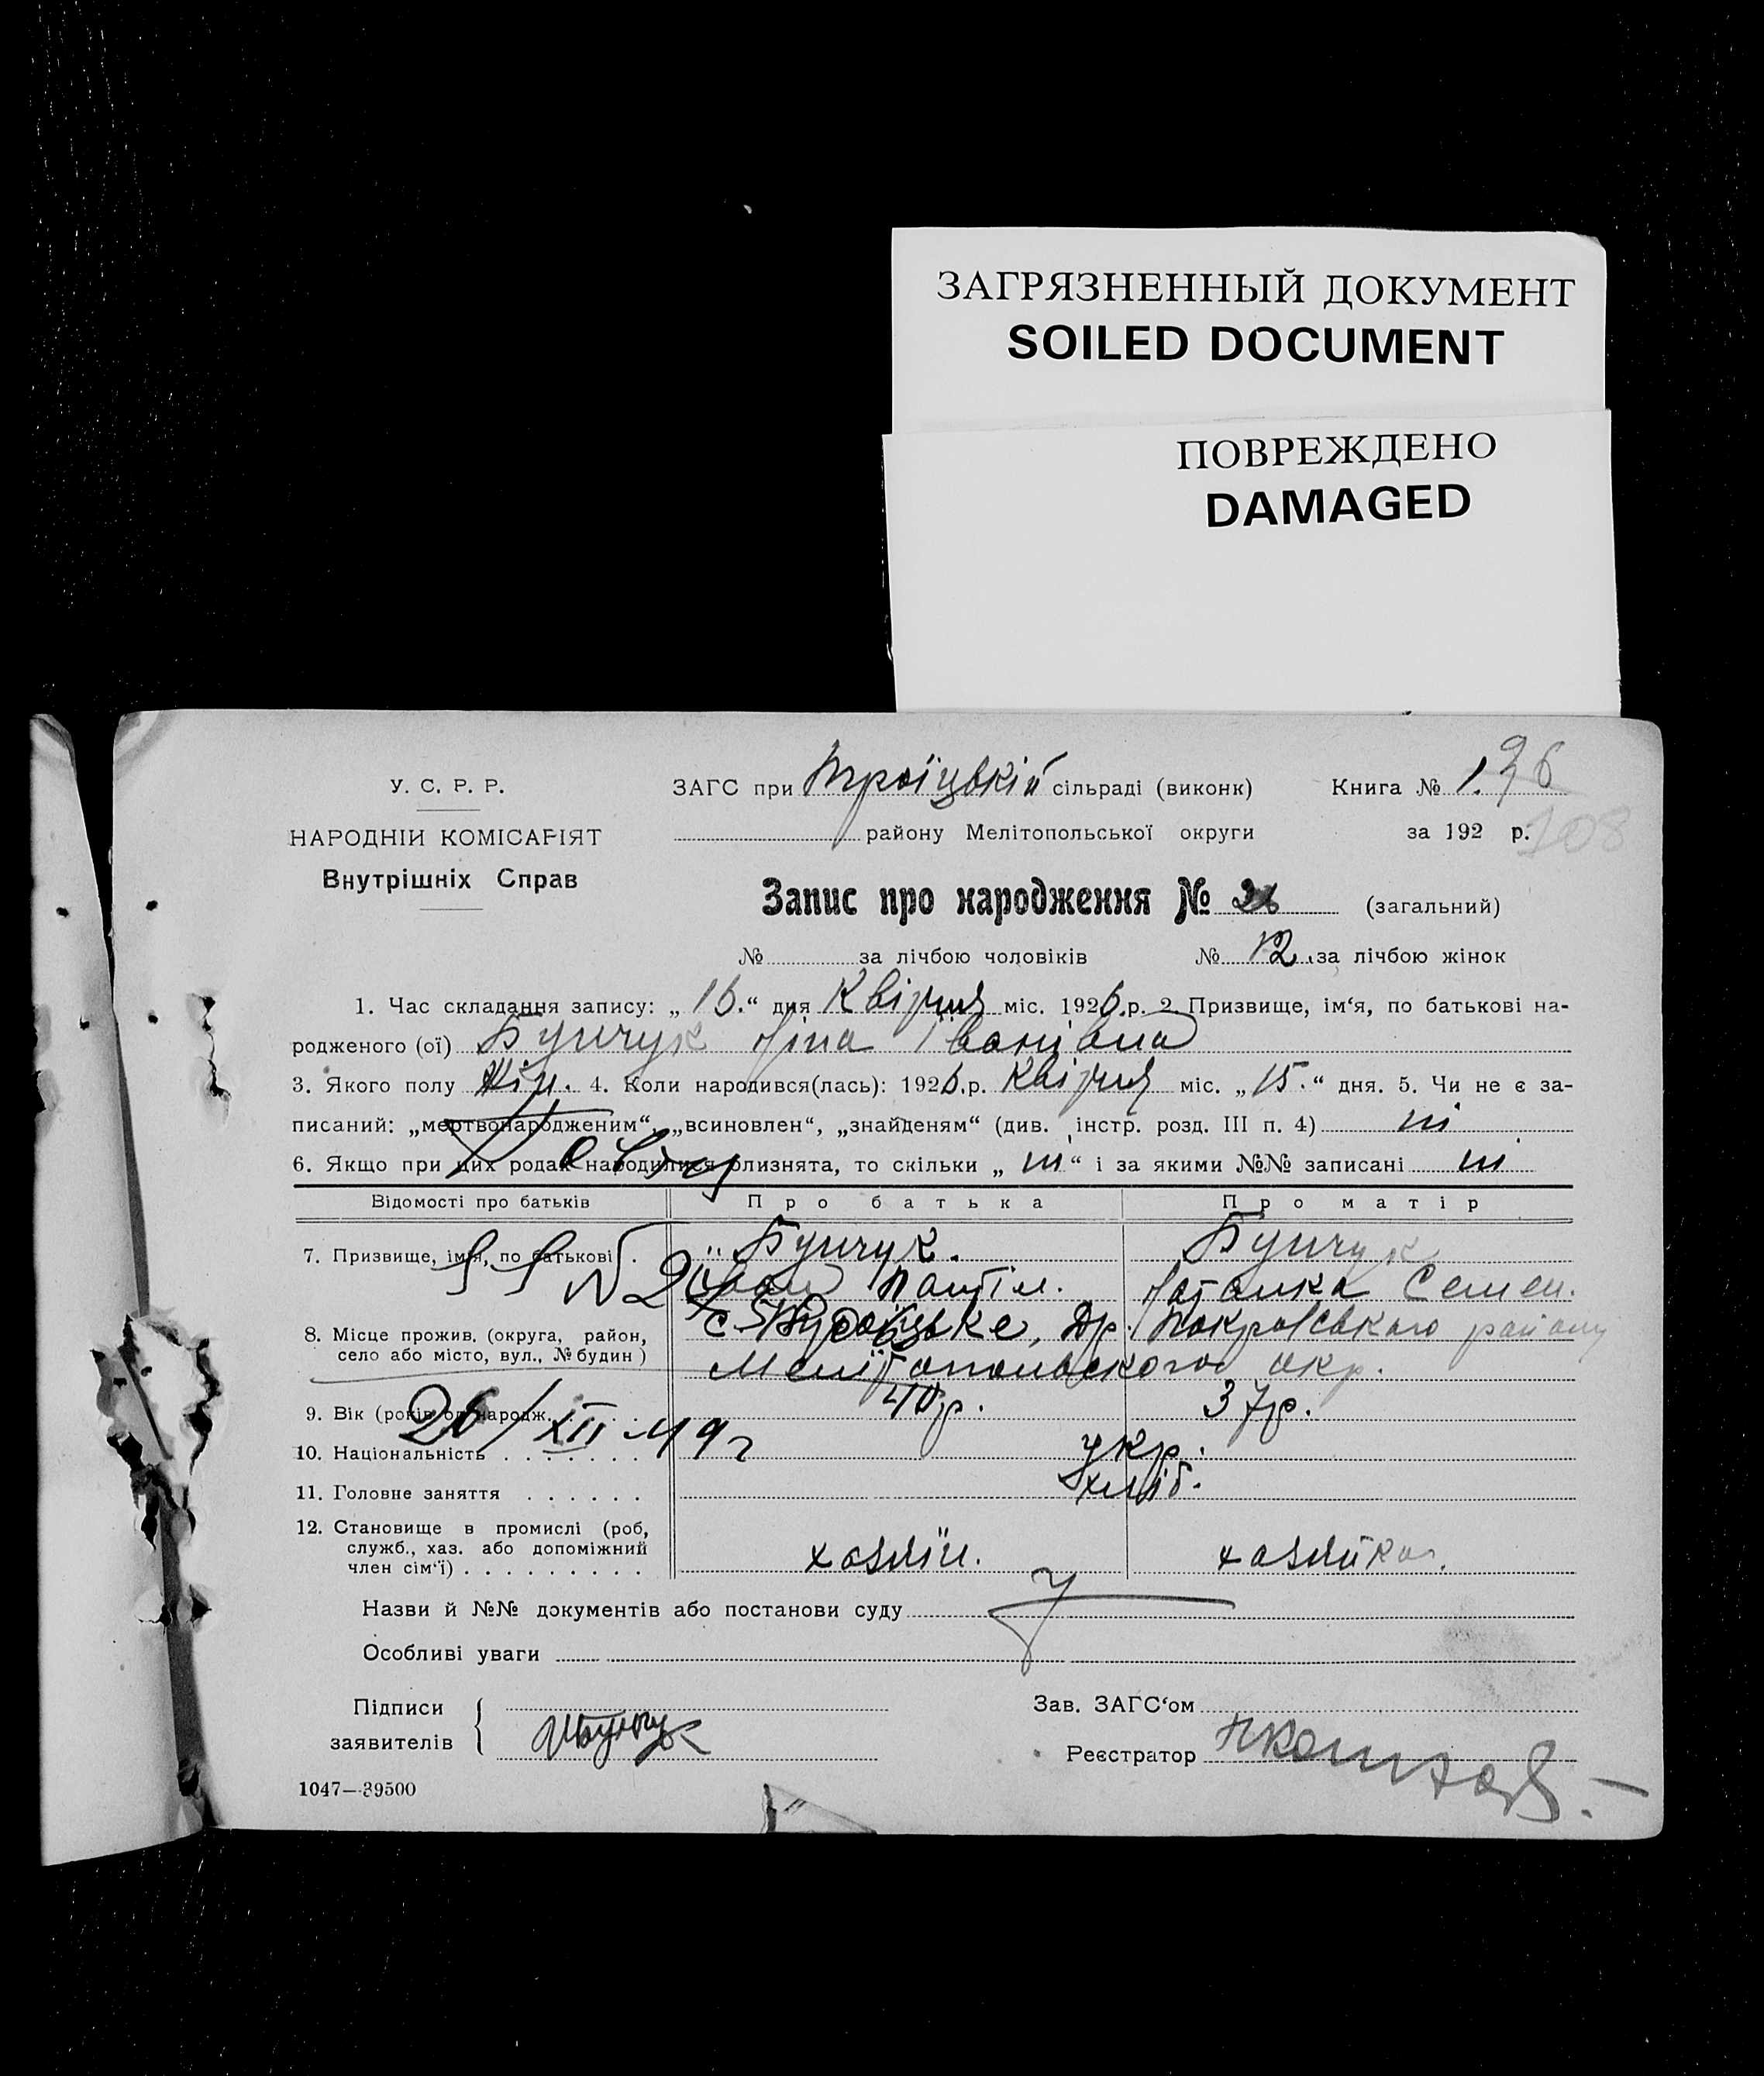 ЗАГРЯЗНЕННЫЙ ДОКУМЕНТ
SOILED DOCUMENT
ПОВРЕЖДЕНО
DAMAGED
У. С. Р. Р.
НАРОДНІЙ КОМІСАРІЯТ
Внутрішніх Справ
ЗАГС при Троїцькій сільраді (виконк) Книга № 1.
району Мелітопольської округи за 192 р.
108
Запис про народження № (загальний)
№ за лічбою чоловіків № 12. за лічбою жінок
1. Час складання запису: „16.“ дня Квітня міс. 1926.р. 2. Призвище, ім‘я, по батькові на-
родженого (ої) Бунчук Ніна Іванівна
3. Якого полу жін. 4. Коли народився(лась): 1926.р. Квітня міс. „15.“ дня. 5. Чи не є за-
писаний: „мертвонародженим“, „всиновлен“, „знайденям“ (див. інстр. розд. III п. 4) ні
6. Якщо при цих родах народилися близнята, то скільки „ні“ і за якими №№ записані ні
Відомості про батьків Про батька Про матір
7. Призвище, ім‘я, по батькові . Бунчук. Бунчук
Іван Пантіл. Наталка Семен.
8. Місце прожив. (округа, район, с. Троїцьке, Покровського району
село або місто, вул., № будин) Мелітопольского окр.
9. Вік (років од народж. 40р. 37р.
26/XII-49г
10. Національність . . . . . . . укр.
11. Головне заняття . . . . . . хліб.
12. Становище в промислі (роб,
служб., хаз. або допоміжний
член сім‘ї) . . . . . . . . . хазяїн. хазяйка.
Назви й №№ документів або постанови суду
Особливі уваги
Підписи Зав. ЗАГС‘ом
заявителів Реєстратор
1047—39500